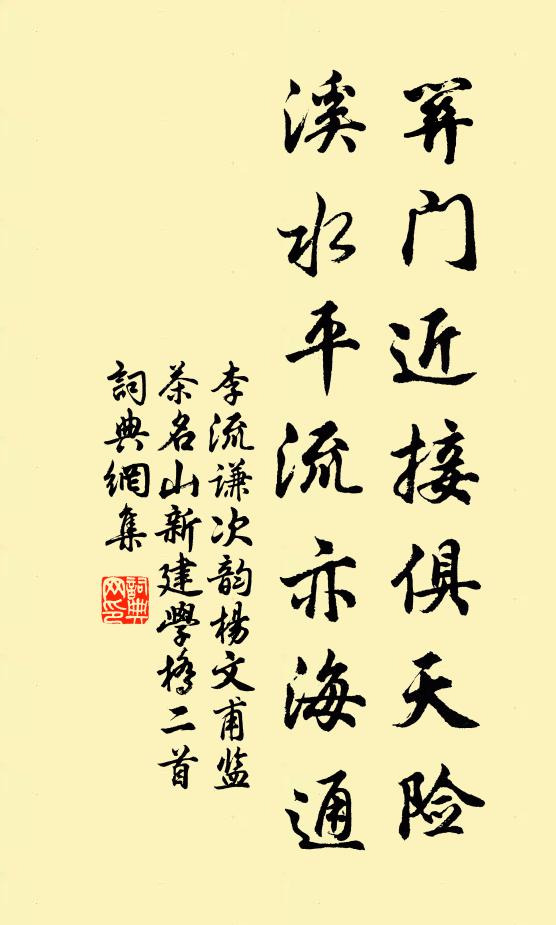 羿门近接俱天险
溪水平流亦海通
李流谦次韵杨文甫监
茶名山新建學橋二首
詞典網集
詞典
网印